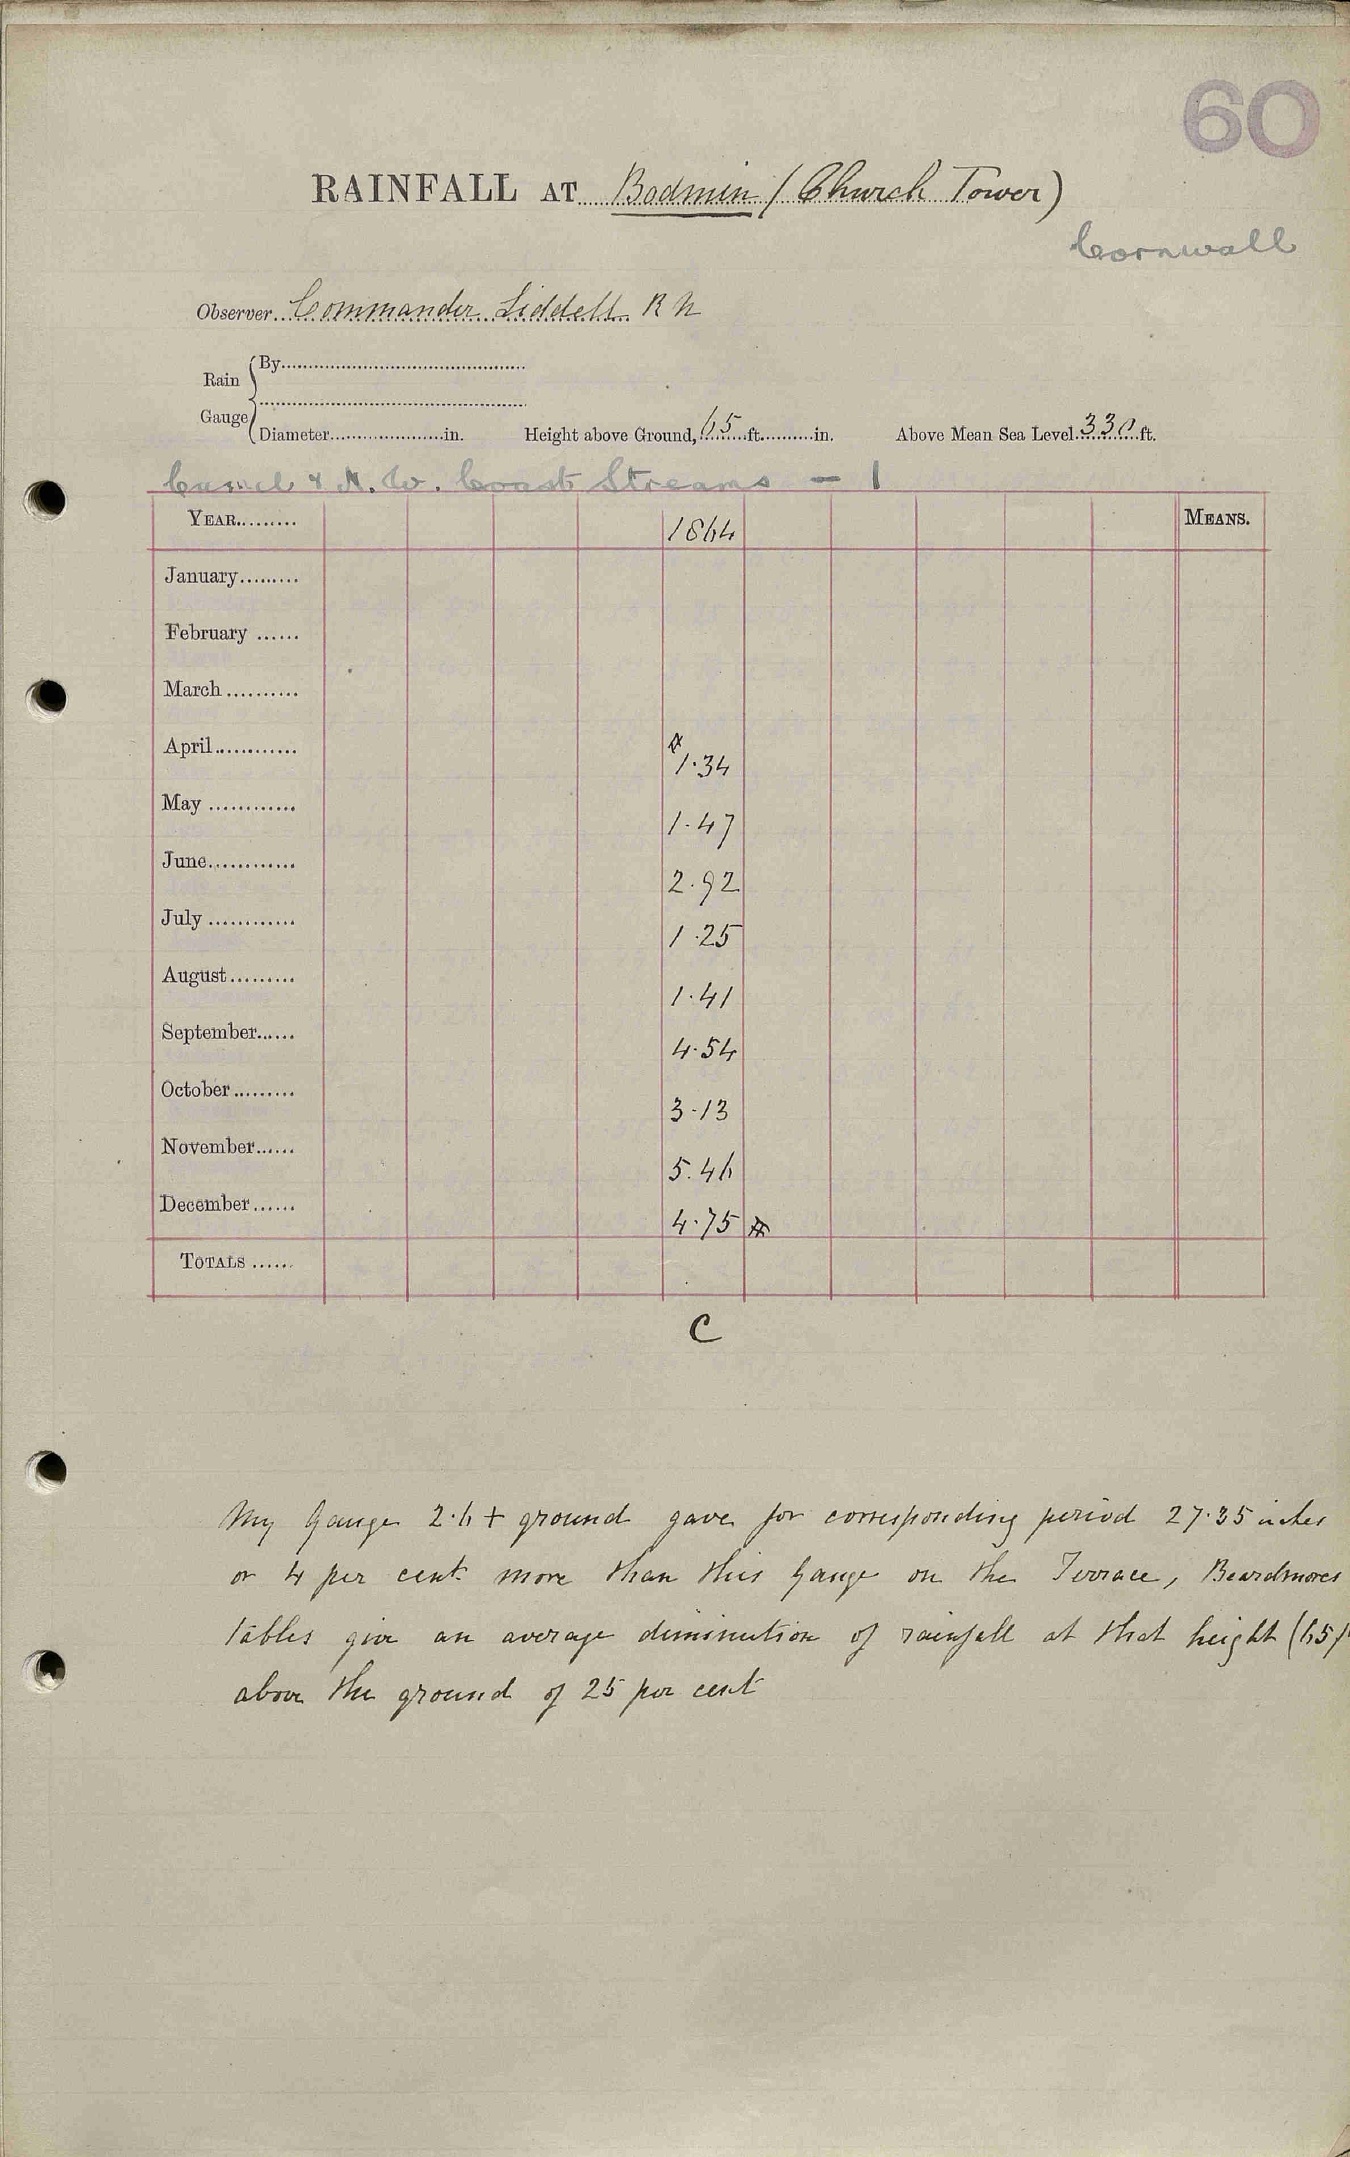 60
RAINFALL AT Bodmin (Church Tower)
Cornwall
Observer Commander Liddell R N
Rain Gauge { By
Diameter in. Height above Ground, 65 ft. in. Above Mean Sea Level 330 ft.
Camel & N. W. Coast Streams - 1
YEAR 1864 MEANS.
January
February
March
April * 1.34
May 1.47
June 2.92
July 1.25
August 1.41
September 4.54
October 3.13
November 5.46
December 4.75 *
TOTALS
C
My Gauge 2.6 + ground gave for corresponding period 27.35 inches
or 4 per cent more than this Gauge on the Terrace, Beardmores
tables give an average diminution of rainfall at that height (65ft
above the ground of 25 per cent